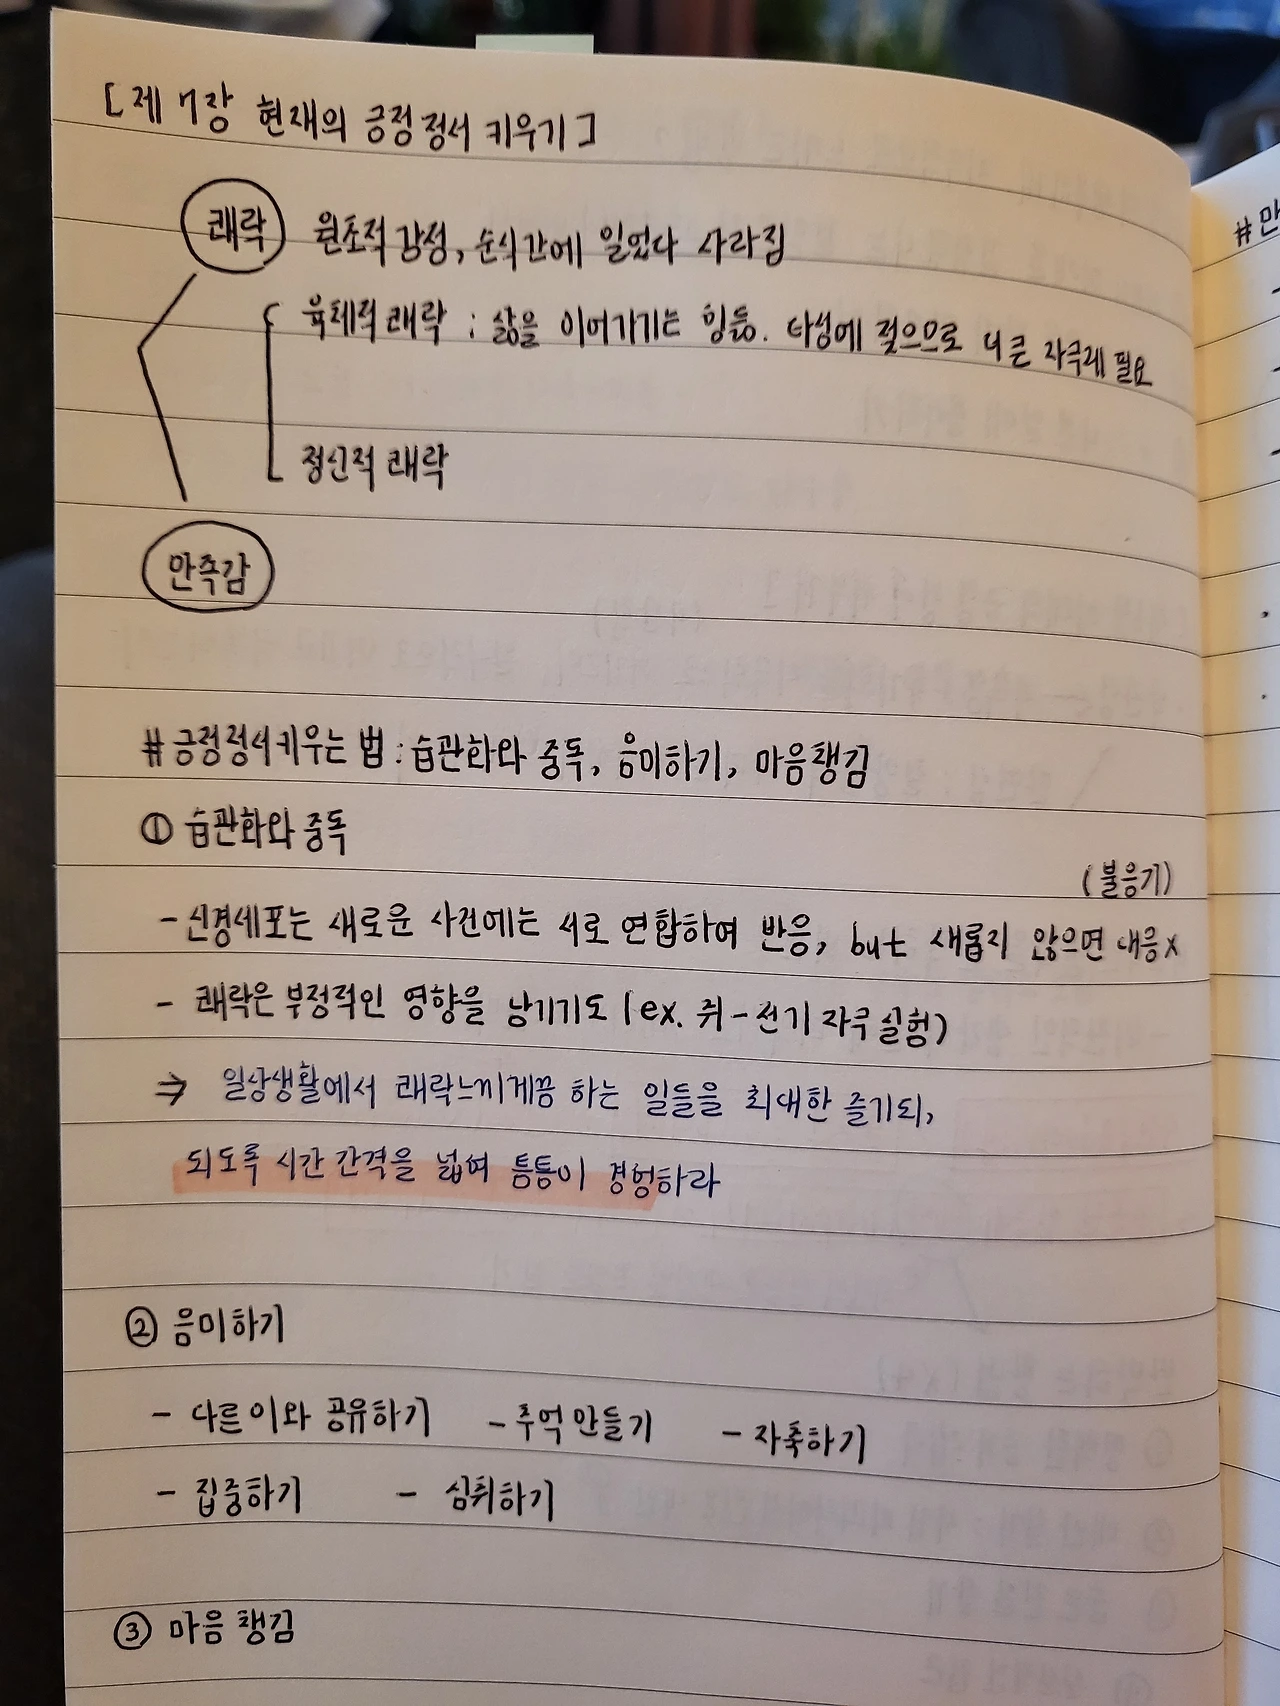 [제 7장 현재의 긍정 정서 키우기]
쾌락 원초적 감성, 순식간에 일었다 사라짐
육체적 쾌락 : 삶을 이어가기는 힘듦. 타성에 젖으므로 더 큰 자극제 필요
정신적 쾌락
만족감
# 긍정정서 키우는 법 : 습관화와 중독, 음미하기, 마음챙김
① 습관화와 중독
(불응기)
- 신경세포는 새로운 사건에는 서로 연합하여 반응, but 새롭지 않으면 대응x
- 쾌락은 부정적인 영향을 남기기도 (ex. 쥐-전기 자극 실험)
⇒ 일상생활에서 쾌락느끼게끔 하는 일들을 최대한 즐기되,
되도록 시간 간격을 넓혀 틈틈이 경험하라
② 음미하기
- 다른이와 공유하기 - 추억 만들기 - 자축하기
- 집중하기 - 심취하기
③ 마음 챙김
# 만